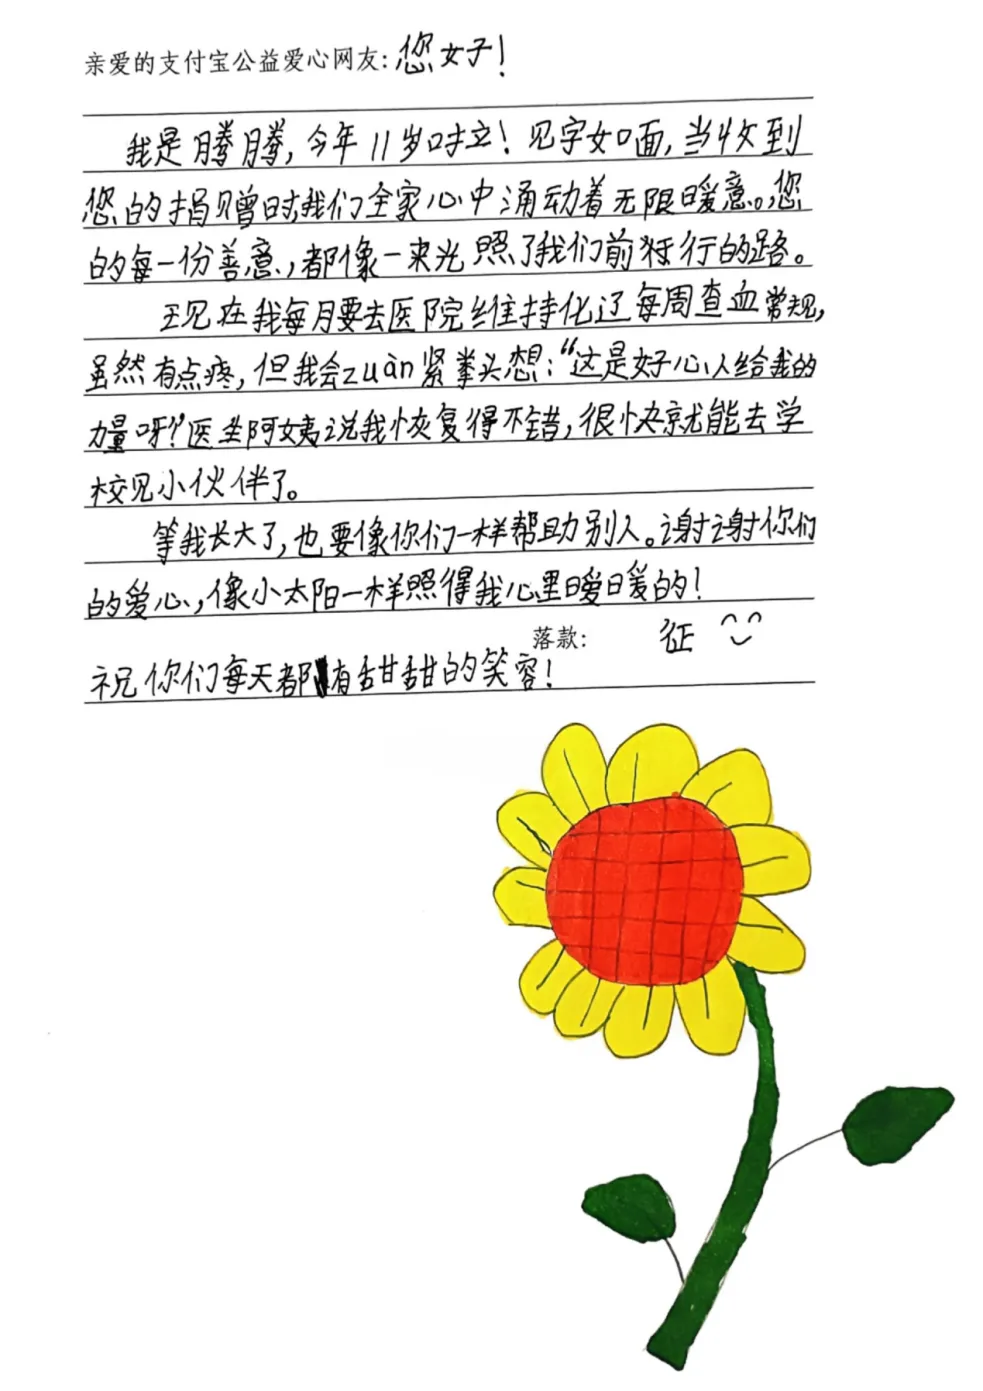 亲爱的支付宝公益爱心网友:您好!
我是腾腾,今年11岁时立!见字如面,当收到
您的捐赠时我们全家心中涌动着无限暖意。您
的每一份善意,都像一束光照了我们前行的路。
现在我每月要去医院维持化辽每周查血常规,
虽然有点疼,但我会zuàn紧拳头想:“这是好心人给我的
力量呀?”医生阿姨说我恢复得不错,很快就能去学
校见小伙伴了。
等我长大了,也要像你们一样帮助别人。谢谢你们
的爱心,像小太阳一样照得我心里暖暖的!
落款: 征
祝你们每天都有甜甜的笑容!